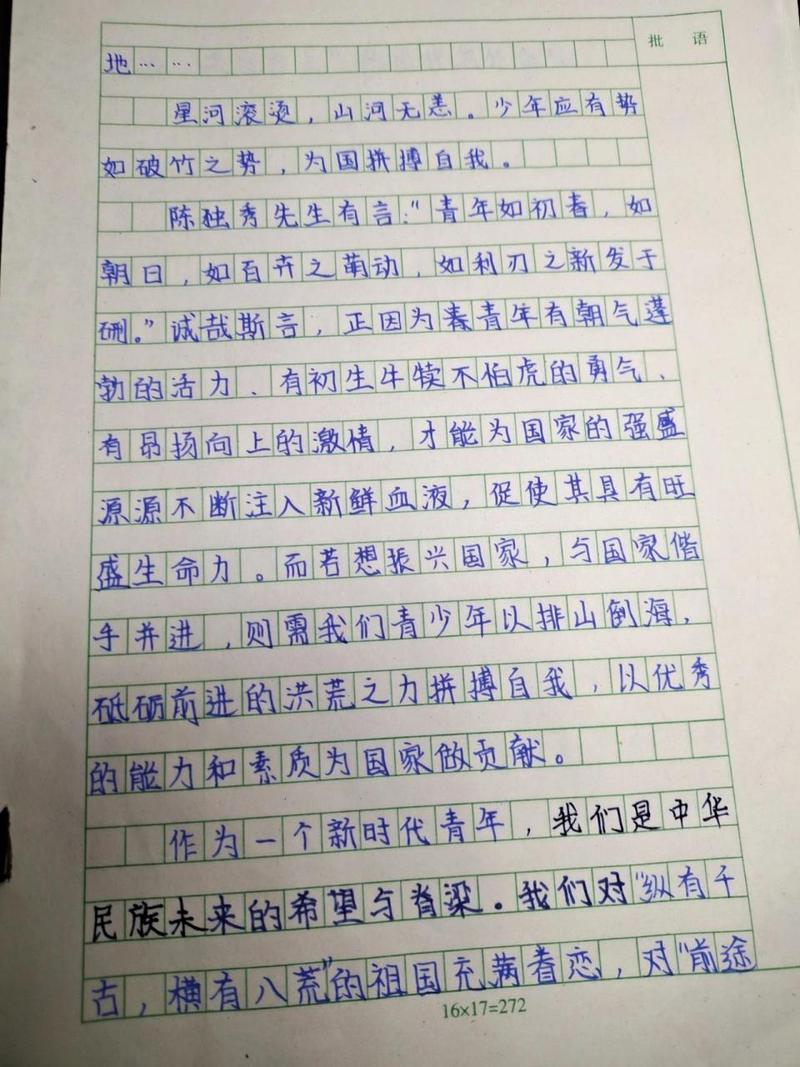 批 语
地……
星河滚烫，山河无恙。少年应有势
如破竹之势，为国拼搏自我。
陈独秀先生有言："青年如初春，如
朝日，如百卉之萌动，如利刃之新发于
硎。"诚哉斯言，正因为青年有朝气蓬
勃的活力、有初生牛犊不怕虎的勇气、
有昂扬向上的激情，才能为国家的强盛
源源不断注入新鲜血液，促使其具有旺
盛生命力。而若想振兴国家，与国家偕
手并进，则需我们青少年以排山倒海，
砥砺前进的洪荒之力拼搏自我，以优秀
的能力和素质为国家做贡献。
作为一个新时代青年，我们是中华
民族未来的希望与脊梁。我们对"纵有千
古，横有八荒"的祖国充满眷恋，对"前途
16×17=272